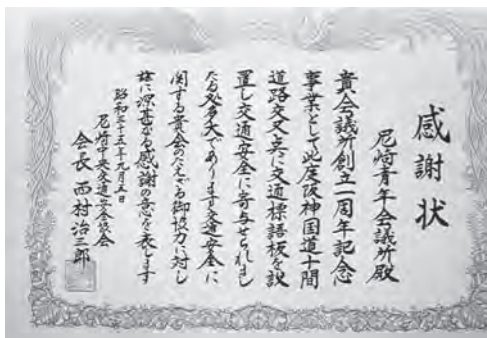 感謝状
尼崎青年会議所殿
貴会議所創立一周年記念
事業として此度阪神国道十間
道路交叉点に交通標語板を設
置し交通安全に寄与せられまし
たる処多大であります交通安全に
関する貴会のたえざる御協力に対し
茲に深甚なる感謝の意を表します
昭和三十五年九月五日
尼崎中央交通安全協会
会長 西村治三郎